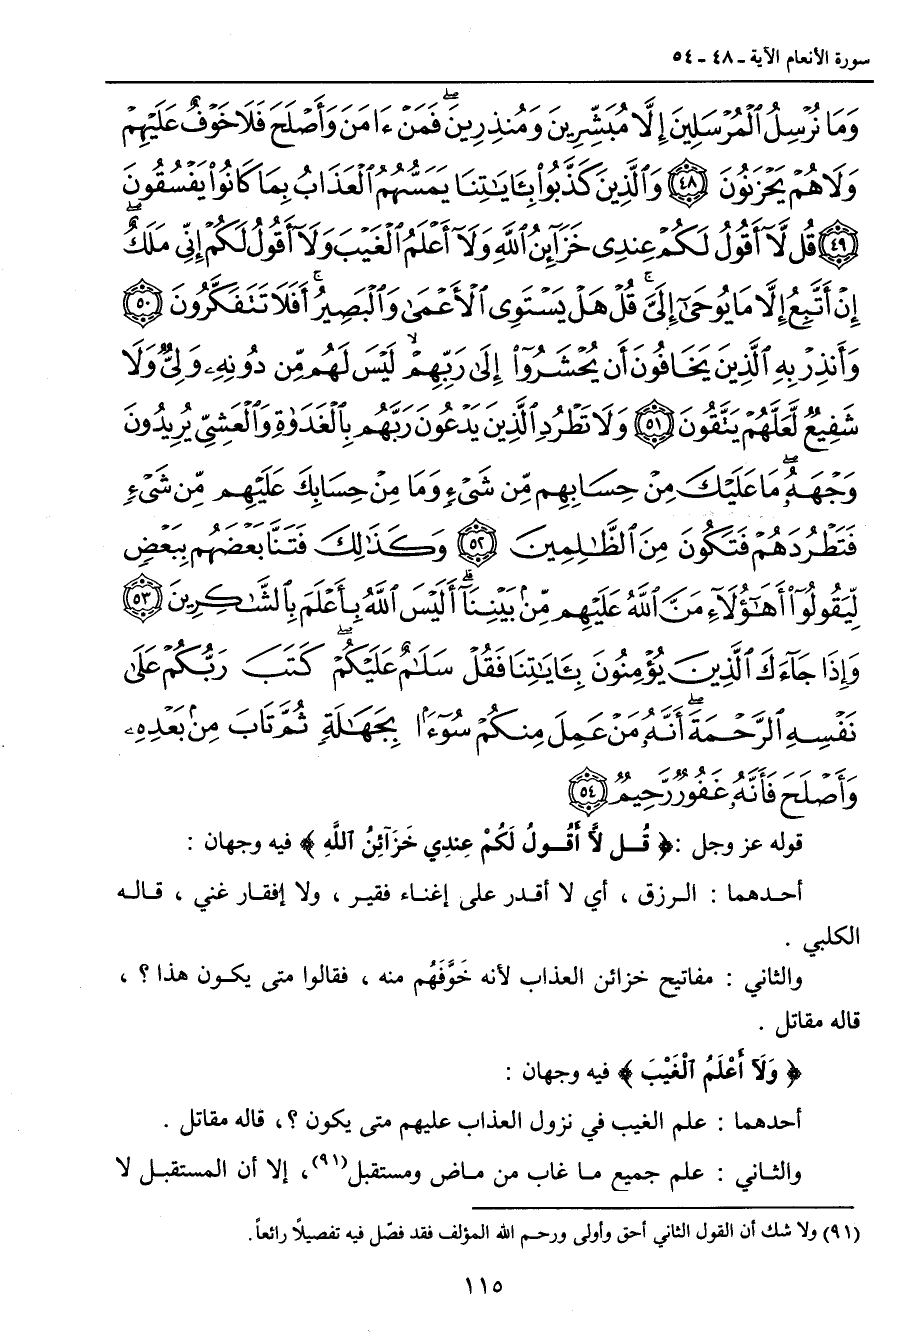 سورة الأنعام الآية ـ ٤٨ ـ ٥٤
وَمَا نُرْسِلُ ٱلْمُرْسَلِينَ إِلَّا مُبَشِّرِينَ وَمُنذِرِينَ ۖ فَمَنْ ءَامَنَ وَأَصْلَحَ فَلَا خَوْفٌ عَلَيْهِمْ
وَلَا هُمْ يَحْزَنُونَ ﴿٤٨﴾ وَٱلَّذِينَ كَذَّبُوا۟ بِـَٔايَـٰتِنَا يَمَسُّهُمُ ٱلْعَذَابُ بِمَا كَانُوا۟ يَفْسُقُونَ
﴿٤٩﴾ قُل لَّآ أَقُولُ لَكُمْ عِندِى خَزَآئِنُ ٱللَّهِ وَلَآ أَعْلَمُ ٱلْغَيْبَ وَلَآ أَقُولُ لَكُمْ إِنِّى مَلَكٌ ۖ
إِنْ أَتَّبِعُ إِلَّا مَا يُوحَىٰٓ إِلَىَّ ۚ قُلْ هَلْ يَسْتَوِى ٱلْأَعْمَىٰ وَٱلْبَصِيرُ ۚ أَفَلَا تَتَفَكَّرُونَ ﴿٥٠﴾
وَأَنذِرْ بِهِ ٱلَّذِينَ يَخَافُونَ أَن يُحْشَرُوٓا۟ إِلَىٰ رَبِّهِمْ ۙ لَيْسَ لَهُم مِّن دُونِهِۦ وَلِىٌّ وَلَا
شَفِيعٌ لَّعَلَّهُمْ يَتَّقُونَ ﴿٥١﴾ وَلَا تَطْرُدِ ٱلَّذِينَ يَدْعُونَ رَبَّهُم بِٱلْغَدَوٰةِ وَٱلْعَشِىِّ يُرِيدُونَ
وَجْهَهُۥ ۖ مَا عَلَيْكَ مِنْ حِسَابِهِم مِّن شَىْءٍ وَمَا مِنْ حِسَابِكَ عَلَيْهِم مِّن شَىْءٍ
فَتَطْرُدَهُمْ فَتَكُونَ مِنَ ٱلظَّـٰلِمِينَ ﴿٥٢﴾ وَكَذَٰلِكَ فَتَنَّا بَعْضَهُم بِبَعْضٍ
لِّيَقُولُوٓا۟ أَهَـٰٓؤُلَآءِ مَنَّ ٱللَّهُ عَلَيْهِم مِّنۢ بَيْنِنَآ ۗ أَلَيْسَ ٱللَّهُ بِأَعْلَمَ بِٱلشَّـٰكِرِينَ ﴿٥٣﴾
وَإِذَا جَآءَكَ ٱلَّذِينَ يُؤْمِنُونَ بِـَٔايَـٰتِنَا فَقُلْ سَلَـٰمٌ عَلَيْكُمْ ۖ كَتَبَ رَبُّكُمْ عَلَىٰ
نَفْسِهِ ٱلرَّحْمَةَ ۖ أَنَّهُۥ مَنْ عَمِلَ مِنكُمْ سُوٓءًۢا بِجَهَـٰلَةٍ ثُمَّ تَابَ مِنۢ بَعْدِهِۦ
وَأَصْلَحَ فَأَنَّهُۥ غَفُورٌ رَّحِيمٌ ﴿٥٤﴾
قوله عز وجل : ﴿ قُـل لَّا أَقُـولُ لَكُمْ عِندِي خَزَآئِنُ ٱللَّهِ ﴾ فيه وجهان :
أحـدهما : الـرزق ، أي لا أقـدر على إغناء فقير ، ولا إفقار غني ، قـالـه
الكلبي .
والثاني : مفاتيح خزائن العذاب لأنه خَوَّفَهُم منه ، فقالوا متى يكـون هذا ؟ ،
قاله مقاتل .
﴿ وَلَآ أَعْلَمُ ٱلْغَيْبَ ﴾ فيه وجهان :
أحدهما : علم الغيب في نزول العذاب عليهم متى يكون ؟، قاله مقاتل .
والثـاني : علم جميع مـا غاب من مـاض ومستقبل(٩١)، إلا أن المستقبـل لا
(٩١) ولا شك أن القول الثاني أحق وأولى ورحـم الله المؤلف فقد فصّل فيه تفصيلاً رائعاً.
١١٥